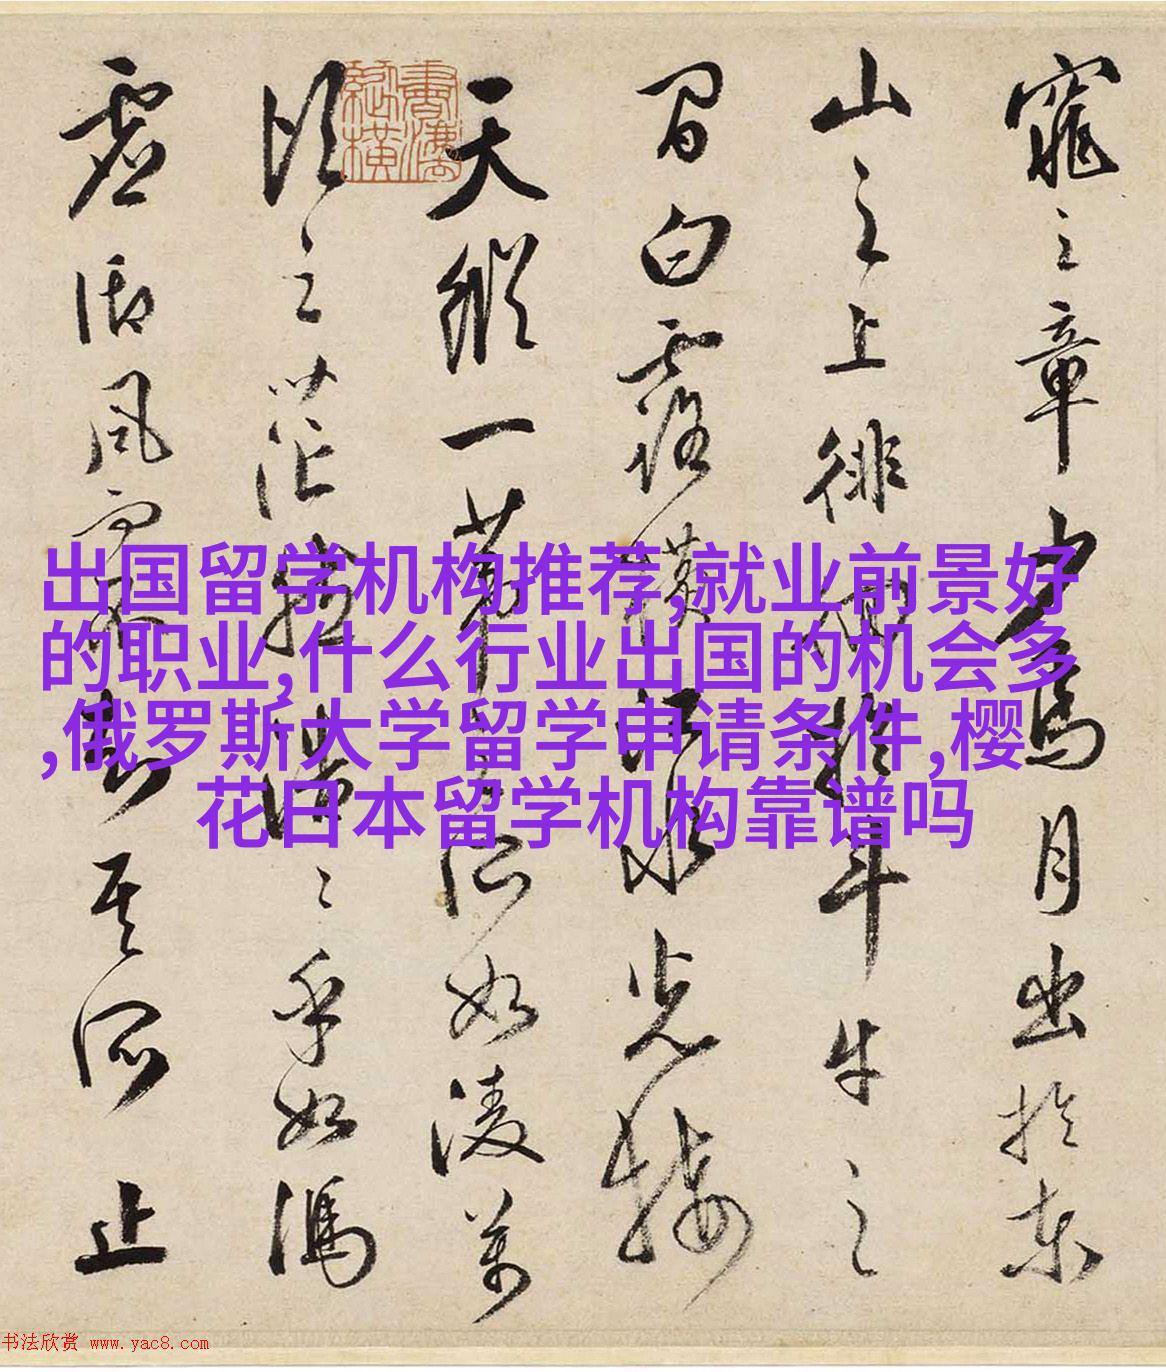 窕之章少焉月出於東
山之上徘徊於斗牛之
間白露橫江水光接
天縱一葦之所如凌萬
頃之茫然浩〻乎如馮
虛御風而不知其所止
出国留学机构推荐,就业前景好
的职业,什么行业出国的机会多
,俄罗斯大学留学申请条件,樱
花日本留学机构靠谱吗
书法欣赏 www.yac8.com